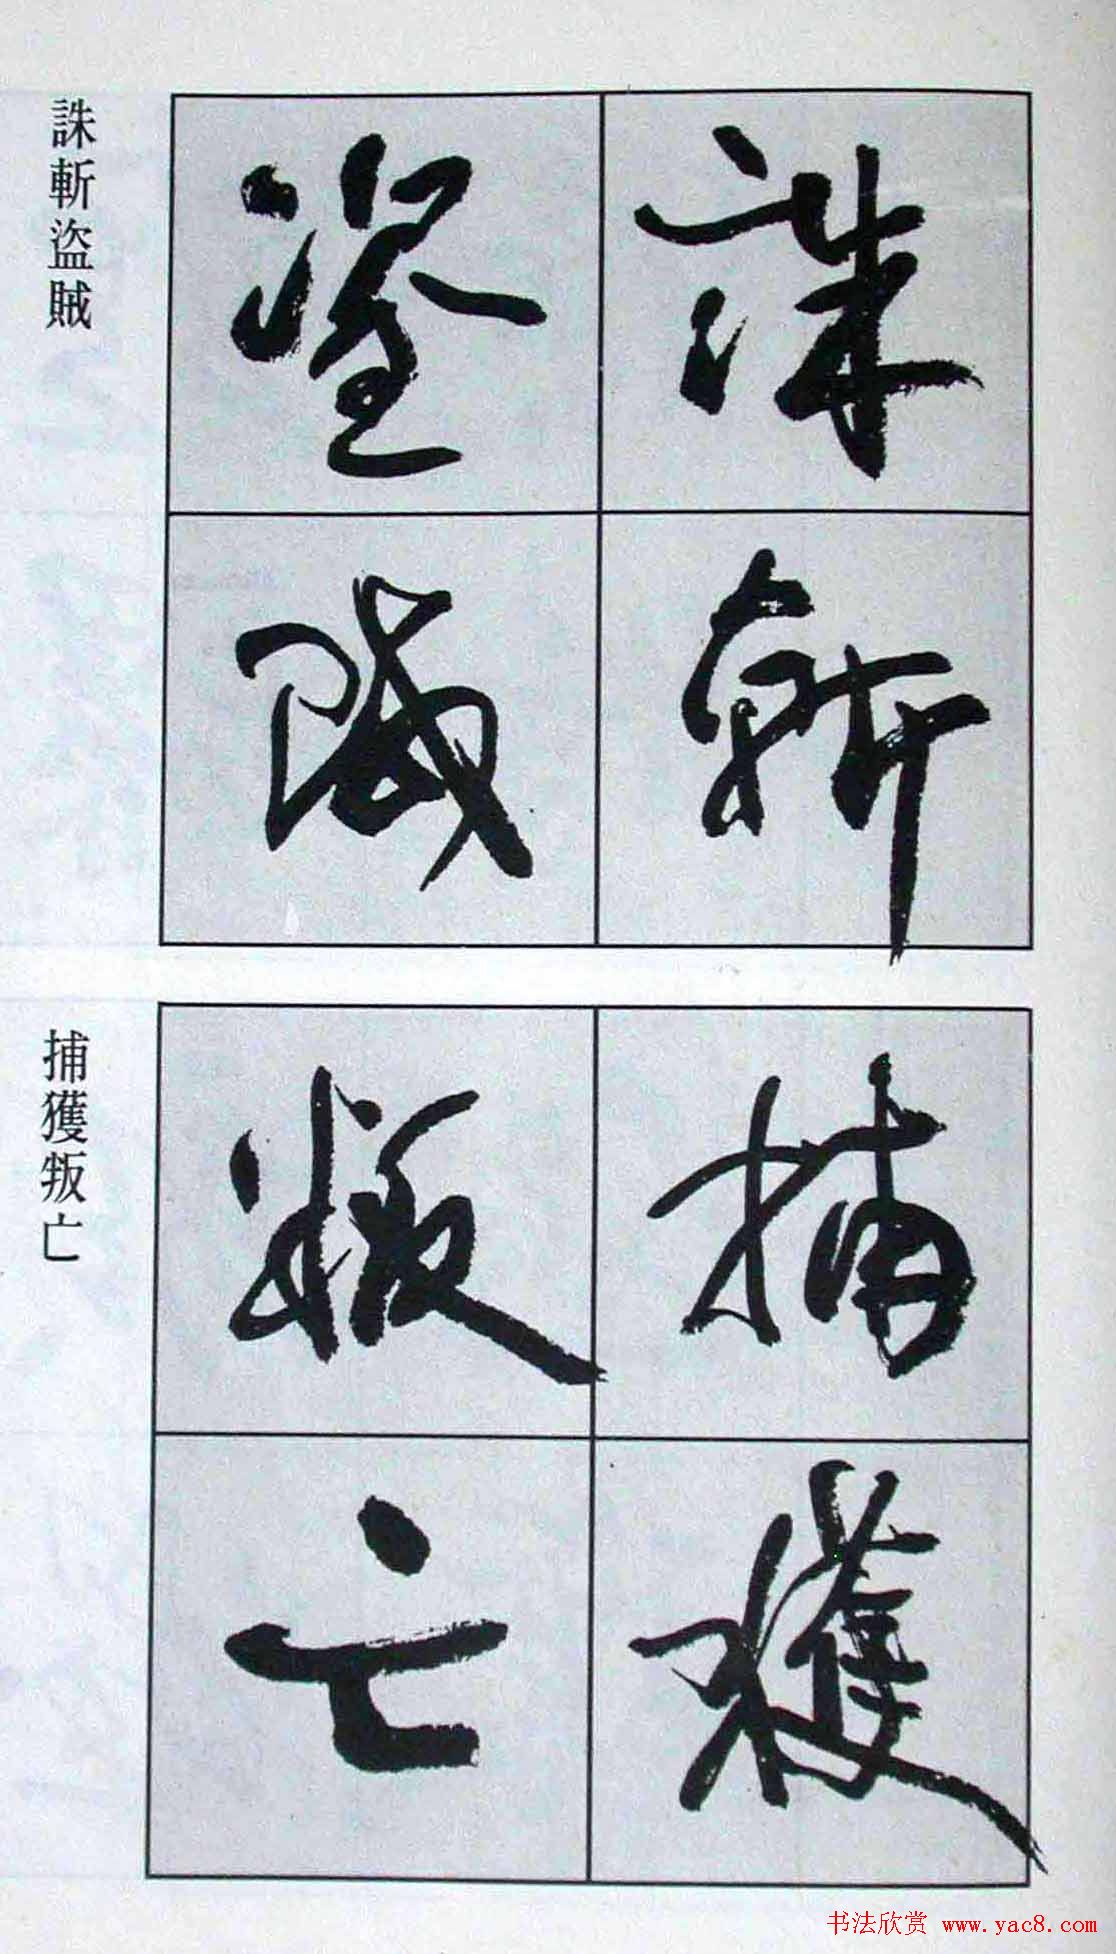 誅斬
盜賊
誅斬盜賊
捕獲
叛亡
捕獲叛亡
书法欣赏 www.yac8.com